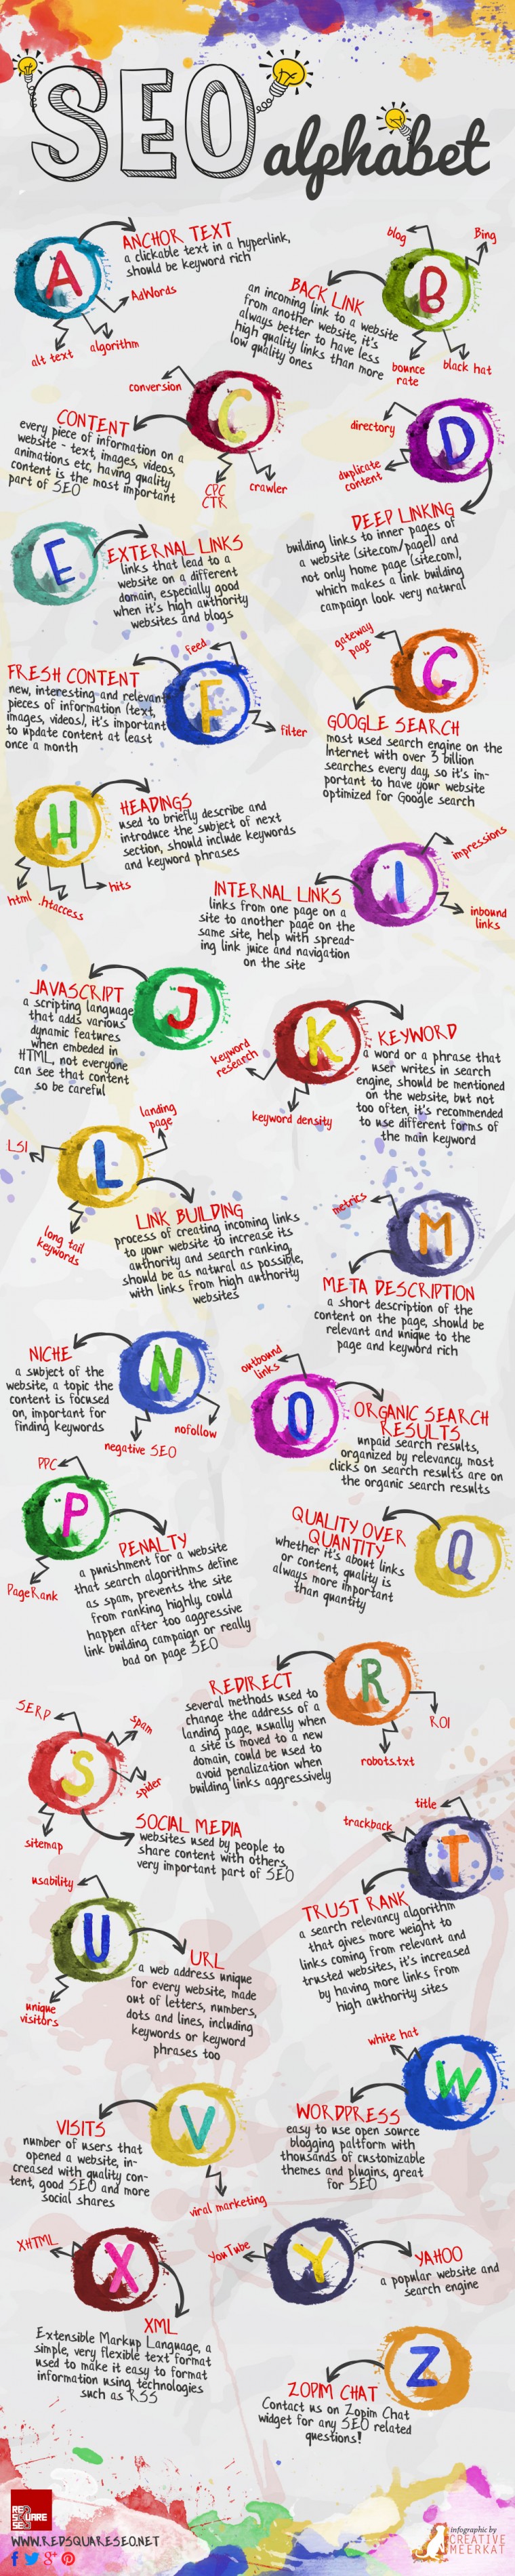 SEO alphabet
A
ANCHOR TEXT
a clickable text in a hyperlink,
should be keyword rich
AdWords
algorithm
alt text
B
blog
Bing
BACK LINK
an incoming link to a website
from another website, it's
always better to have less
high quality links than more
low quality ones
bounce
rate
black hat
C
conversion
CONTENT
every piece of information on a
website - text, images, videos,
animations etc, having quality
content is the most important
part of SEO
CPC
CTR
crawler
D
directory
duplicate
content
DEEP LINKING
building links to inner pages of
a website (site.com/page1) and
not only home page (site.com),
which makes a link building
campaign look very natural
E
EXTERNAL LINKS
links that lead to a
website on a different
domain, especially good
when it's high authority
websites and blogs
F
feed
FRESH CONTENT
new, interesting and relevant
pieces of information (text,
images, videos), it's important
to update content at least
once a month
filter
G
gateway
page
GOOGLE SEARCH
most used search engine on the
Internet with over 3 billion
searches every day, so it's im-
portant to have your website
optimized for Google search
H
HEADINGS
used to briefly describe and
introduce the subject of next
section, should include keywords
and keyword phrases
html
.htaccess
hits
I
impressions
inbound
links
INTERNAL LINKS
links from one page on a
site to another page on the
same site, help with spread-
ing link juice and navigation
on the site
J
JAVASCRIPT
a scripting language
that adds various
dynamic features
when embeded in
HTML, not everyone
can see that content
so be careful
K
KEYWORD
a word or a phrase that
user writes in search
engine, should be mentioned
on the website, but not
too often, it's recommended
to use different forms of
the main keyword
keyword
research
keyword density
L
landing
page
LSI
long tail
keywords
LINK BUILDING
process of creating incoming links
to your website to increase its
authority and search ranking,
should be as natural as possible,
with links from high authority
websites
M
metrics
META DESCRIPTION
a short description of the
content on the page, should be
relevant and unique to the
page and keyword rich
N
NICHE
a subject of the
website, a topic the
content is focused
on, important for
finding keywords
negative SEO
nofollow
O
outbound
links
ORGANIC SEARCH
RESULTS
unpaid search results,
organized by relevancy, most
clicks on search results are on
the organic search results
P
PPC
PageRank
PENALTY
a punishment for a website
that search algorithms define
as spam, prevents the site
from ranking highly, could
happen after too aggressive
link building campaign or really
bad on page SEO
Q
QUALITY OVER
QUANTITY
whether it's about links
or content quality is
always more important
than quantity
R
REDIRECT
several methods used to
change the address of a
landing page, usually when
a site is moved to a new
domain, could be used to
avoid penalization when
building links aggressively
ROI
robots.txt
S
SERP
spam
spider
sitemap
SOCIAL MEDIA
websites used by people to
share content with others,
very important part of SEO
T
title
trackback
TRUST RANK
a search relevancy algorithm
that gives more weight to
links coming from relevant and
trusted websites, it's increased
by having more links from
high authority sites
U
usability
unique
visitors
URL
a web address unique
for every website, made
out of letters, numbers,
dots and lines, including
keywords or keyword
phrases too
V
VISITS
number of users that
opened a website, in-
creased with quality con-
tent, good SEO and more
social shares
viral marketing
W
white hat
WORDPRESS
easy to use open source
blogging paltform with
thousands of customizable
themes and plugins, great
for SEO
X
XHTML
XML
Extensible Markup Language, a
simple, very flexible text format
used to make it easy to format
information using technologies
such as RSS
Y
YouTube
YAHOO
a popular website and
search engine
Z
ZOPIM CHAT
Contact us on Zopim Chat
widget for any SEO related
questions!
RED
SQUARE
SEO
WWW.REDSQUARESEO.NET
infographic by
CREATIVE
MEERKAT